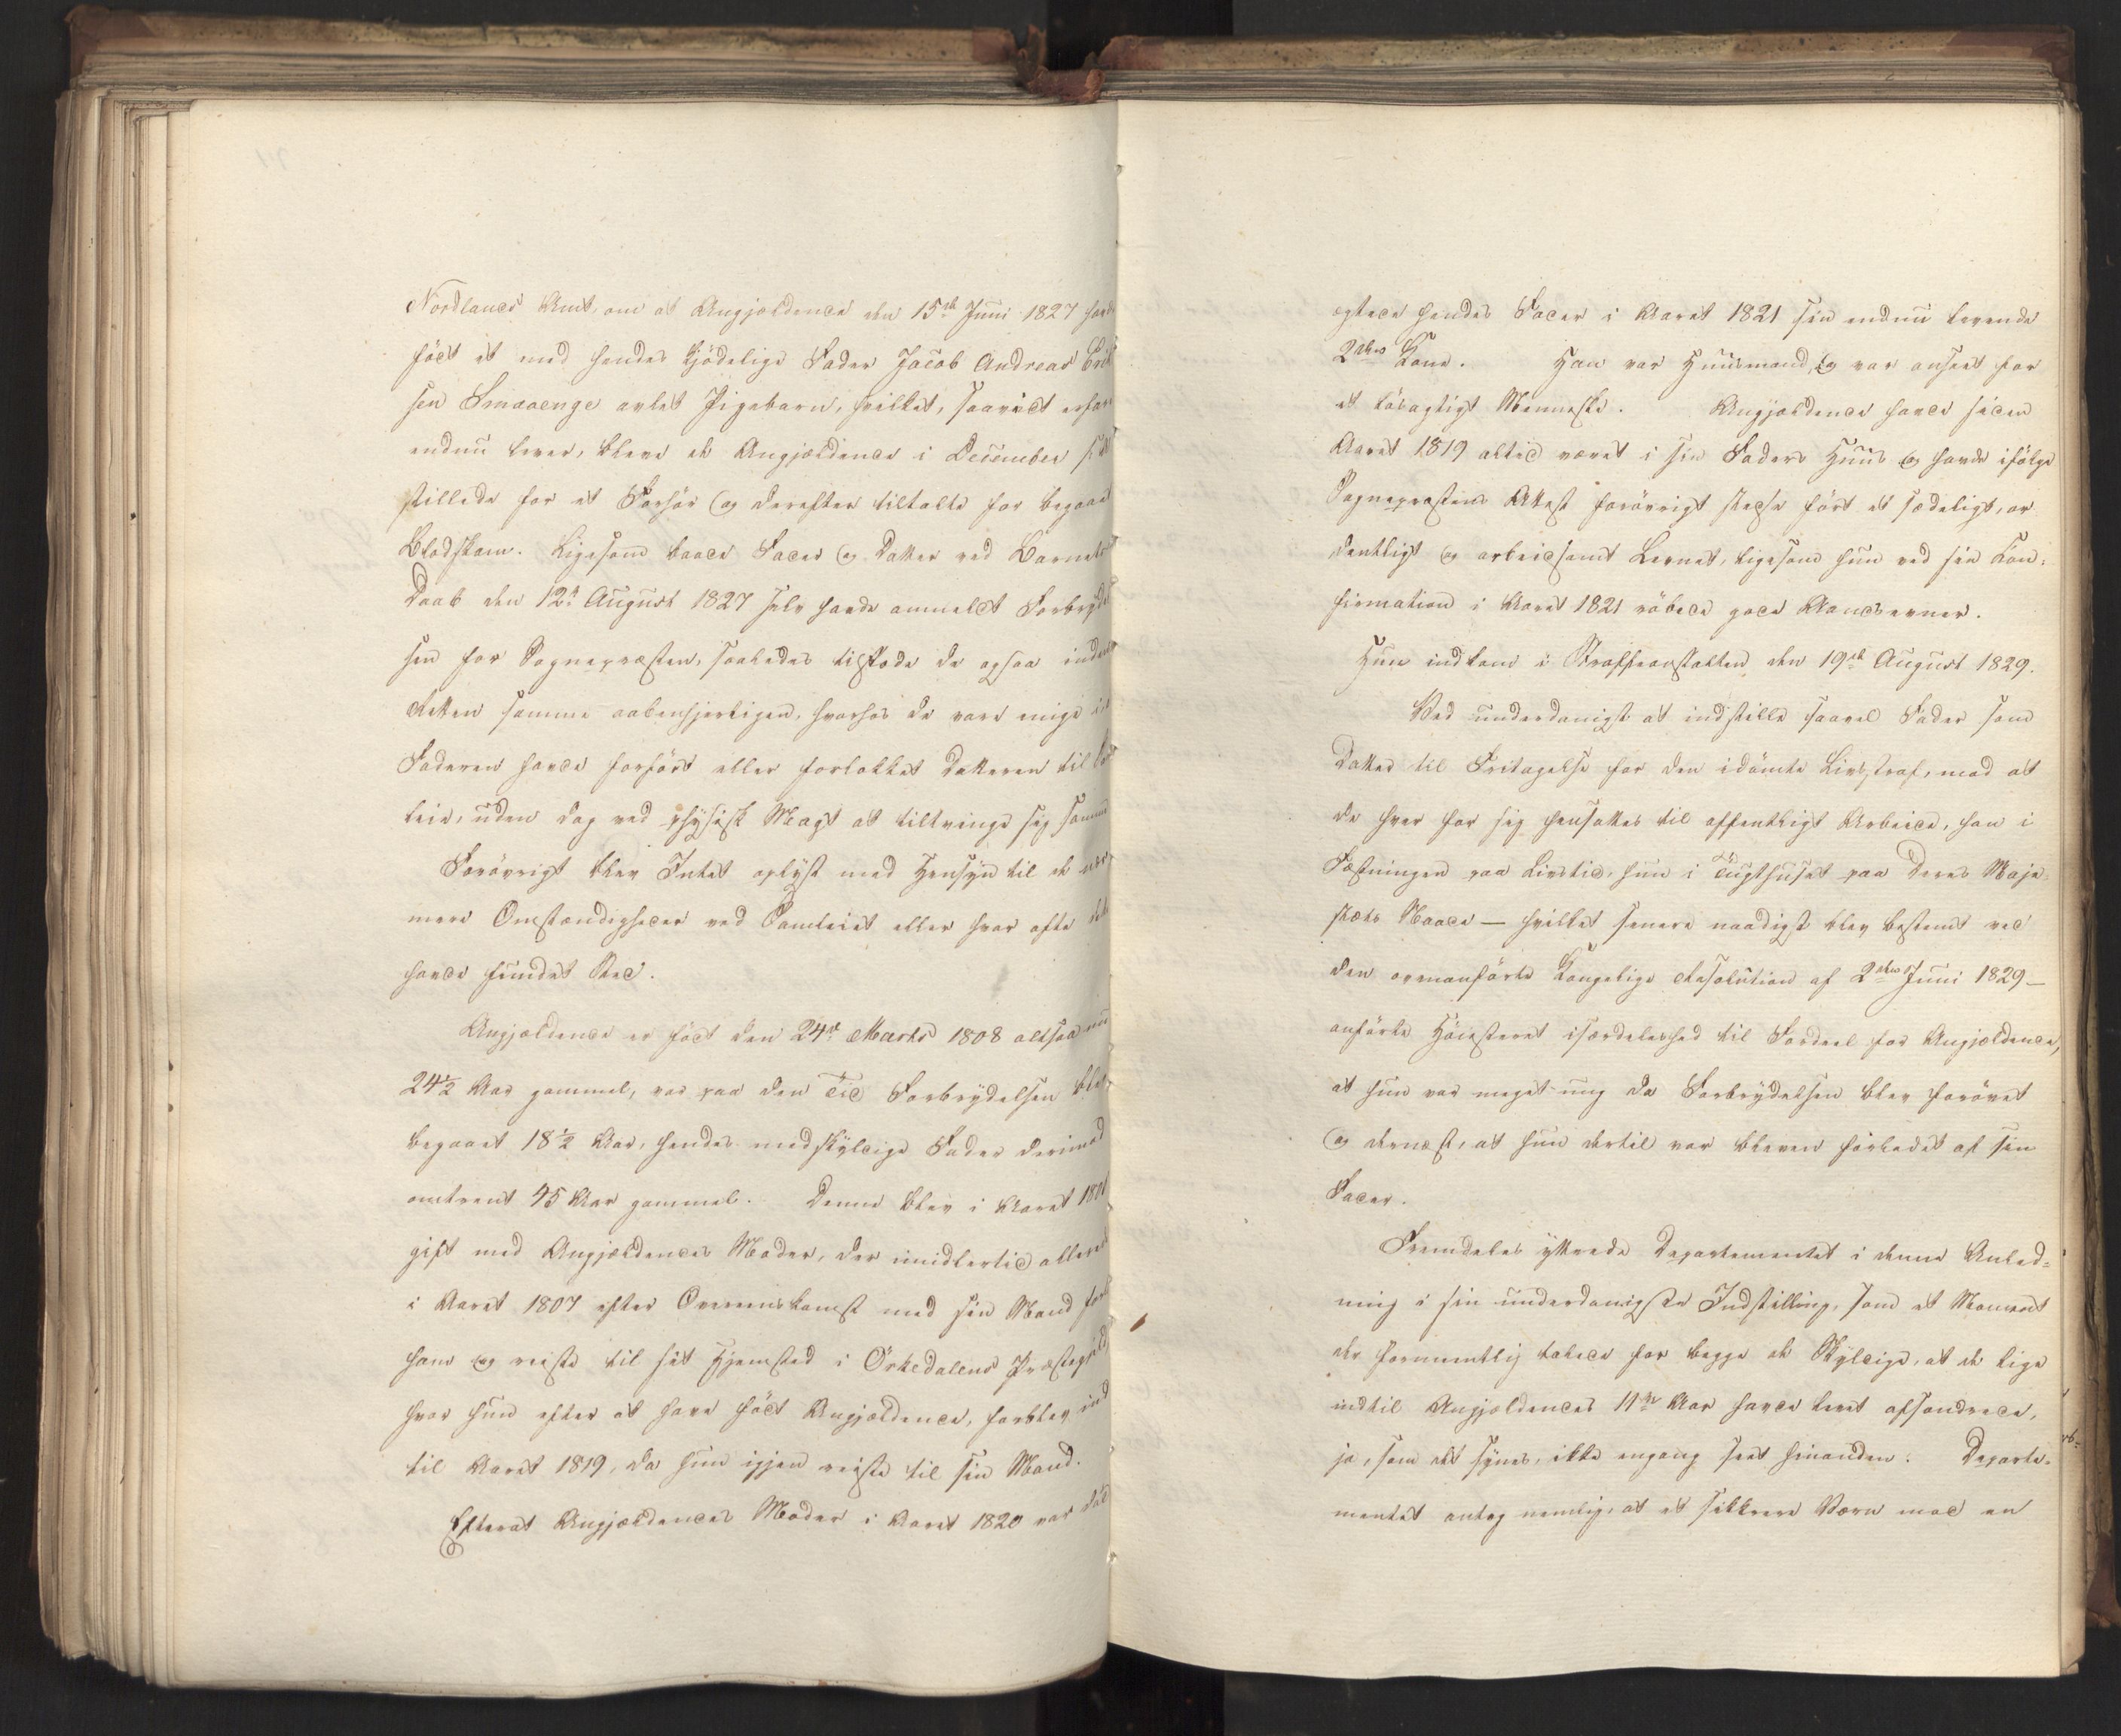 Nordlands Amt, om at Angjældende den 15de Juni 1827 havde
födt et med hendes kjödelige Fader Jacob Andreas
sen Smaaenge avlet Pigebarn, hvilket, saavidt
endnu lever, bleve de Angjældende i December
stillede for et Forhör og derefter tiltalte for begaaet
Blodskam. Ligesom baade Fader og Datter ved Barnets
Daab den 12te August 1827 selv havde anmeldt Forbrydel
sen for Sognepræsten, saaledes tilstode de ogsaa inden
Retten samme aabenhjertigen, hvorhos de vare enige i at
Faderen havde forfört eller forlokket Datteren til
leie, uden dog ved physisk Magt at tiltvinge sig samme
Forövrigt blev Intet oplyst med Hensyn til de nær
mere Omstændigheder ved Samleiet eller hvor ofte dette
havde fundet Sted.
Angjældende er födt den 24de Marts 1808 altsaa nu
24½ Aar gammel, var paa den Tid Forbrydelsen blev
begaaet 18½ Aar, hendes medskyldige Fader derimod
omtrent 45 Aar gammel. Denne blev i Aaret
gift med Angjældendes Moder, der imidlertid allerede
i Aaret 1807 efter Overeenskomst med sin Mand
ham og reiste til sit Hjemsted i Örkedalens Præstegjeld,
hvor hun efter at have födt Angjældende, forblev ind
til Aaret 1819, da hun igjen reiste til sin Mand.
Efterat Angjældendes Moder i Aaret 1820 var död
ægtede hendes Fader i Aaret 1821 sin endnu levende
2den Kone. Han var Huusmand, og var anseet for
et Menneske. Angjældende havde siden
Aaret 1819 altid været i sin Faders Huus og havde ifölge
Sognepræstens Attest forövrigt stedse fört et sædeligt, or
dentligt og arbeidsomt Levnet, ligesom hun ved sin Con-
firmation i Aaret 1821 röbede gode Aandsevner.
Hun indkom i Straffeanstalten den 19de August 1829.
Ved underdanigst at indstille saavel Fader som
Datter til Fritagelse for den idömte Livsstraf, mod at
de hver for sig hensattes til offentligt Arbeide, han i
Fæstningen paa Livstid, hun i Tugthuset paa Deres Maje
stæts Naade - hvilket senere naadigst blev bestemt ved
den ovenanförte Kongelige Resolution af 2den Juni 1829 -
anförte Höiesteret isærdeleshed til Fordeel for Angjældende,
at hun var meget ung da Forbrydelsen blev forövet
og dernæst, at hun dertil var bleven forledet af sin
Fader.
Fremdeles yttrede Departementet i denne Anled-
ning i sin underdanigste Indstilling, som et Moment
der formeentlig talede for begge de Skyldige, at de lige
indtil Angjældendes 11te Aar havde levet afsondrede,
ja, som det synes, ikke engang seet hinanden. Departe-
mentet antog nemlig, at et sikkrere Værn mod en